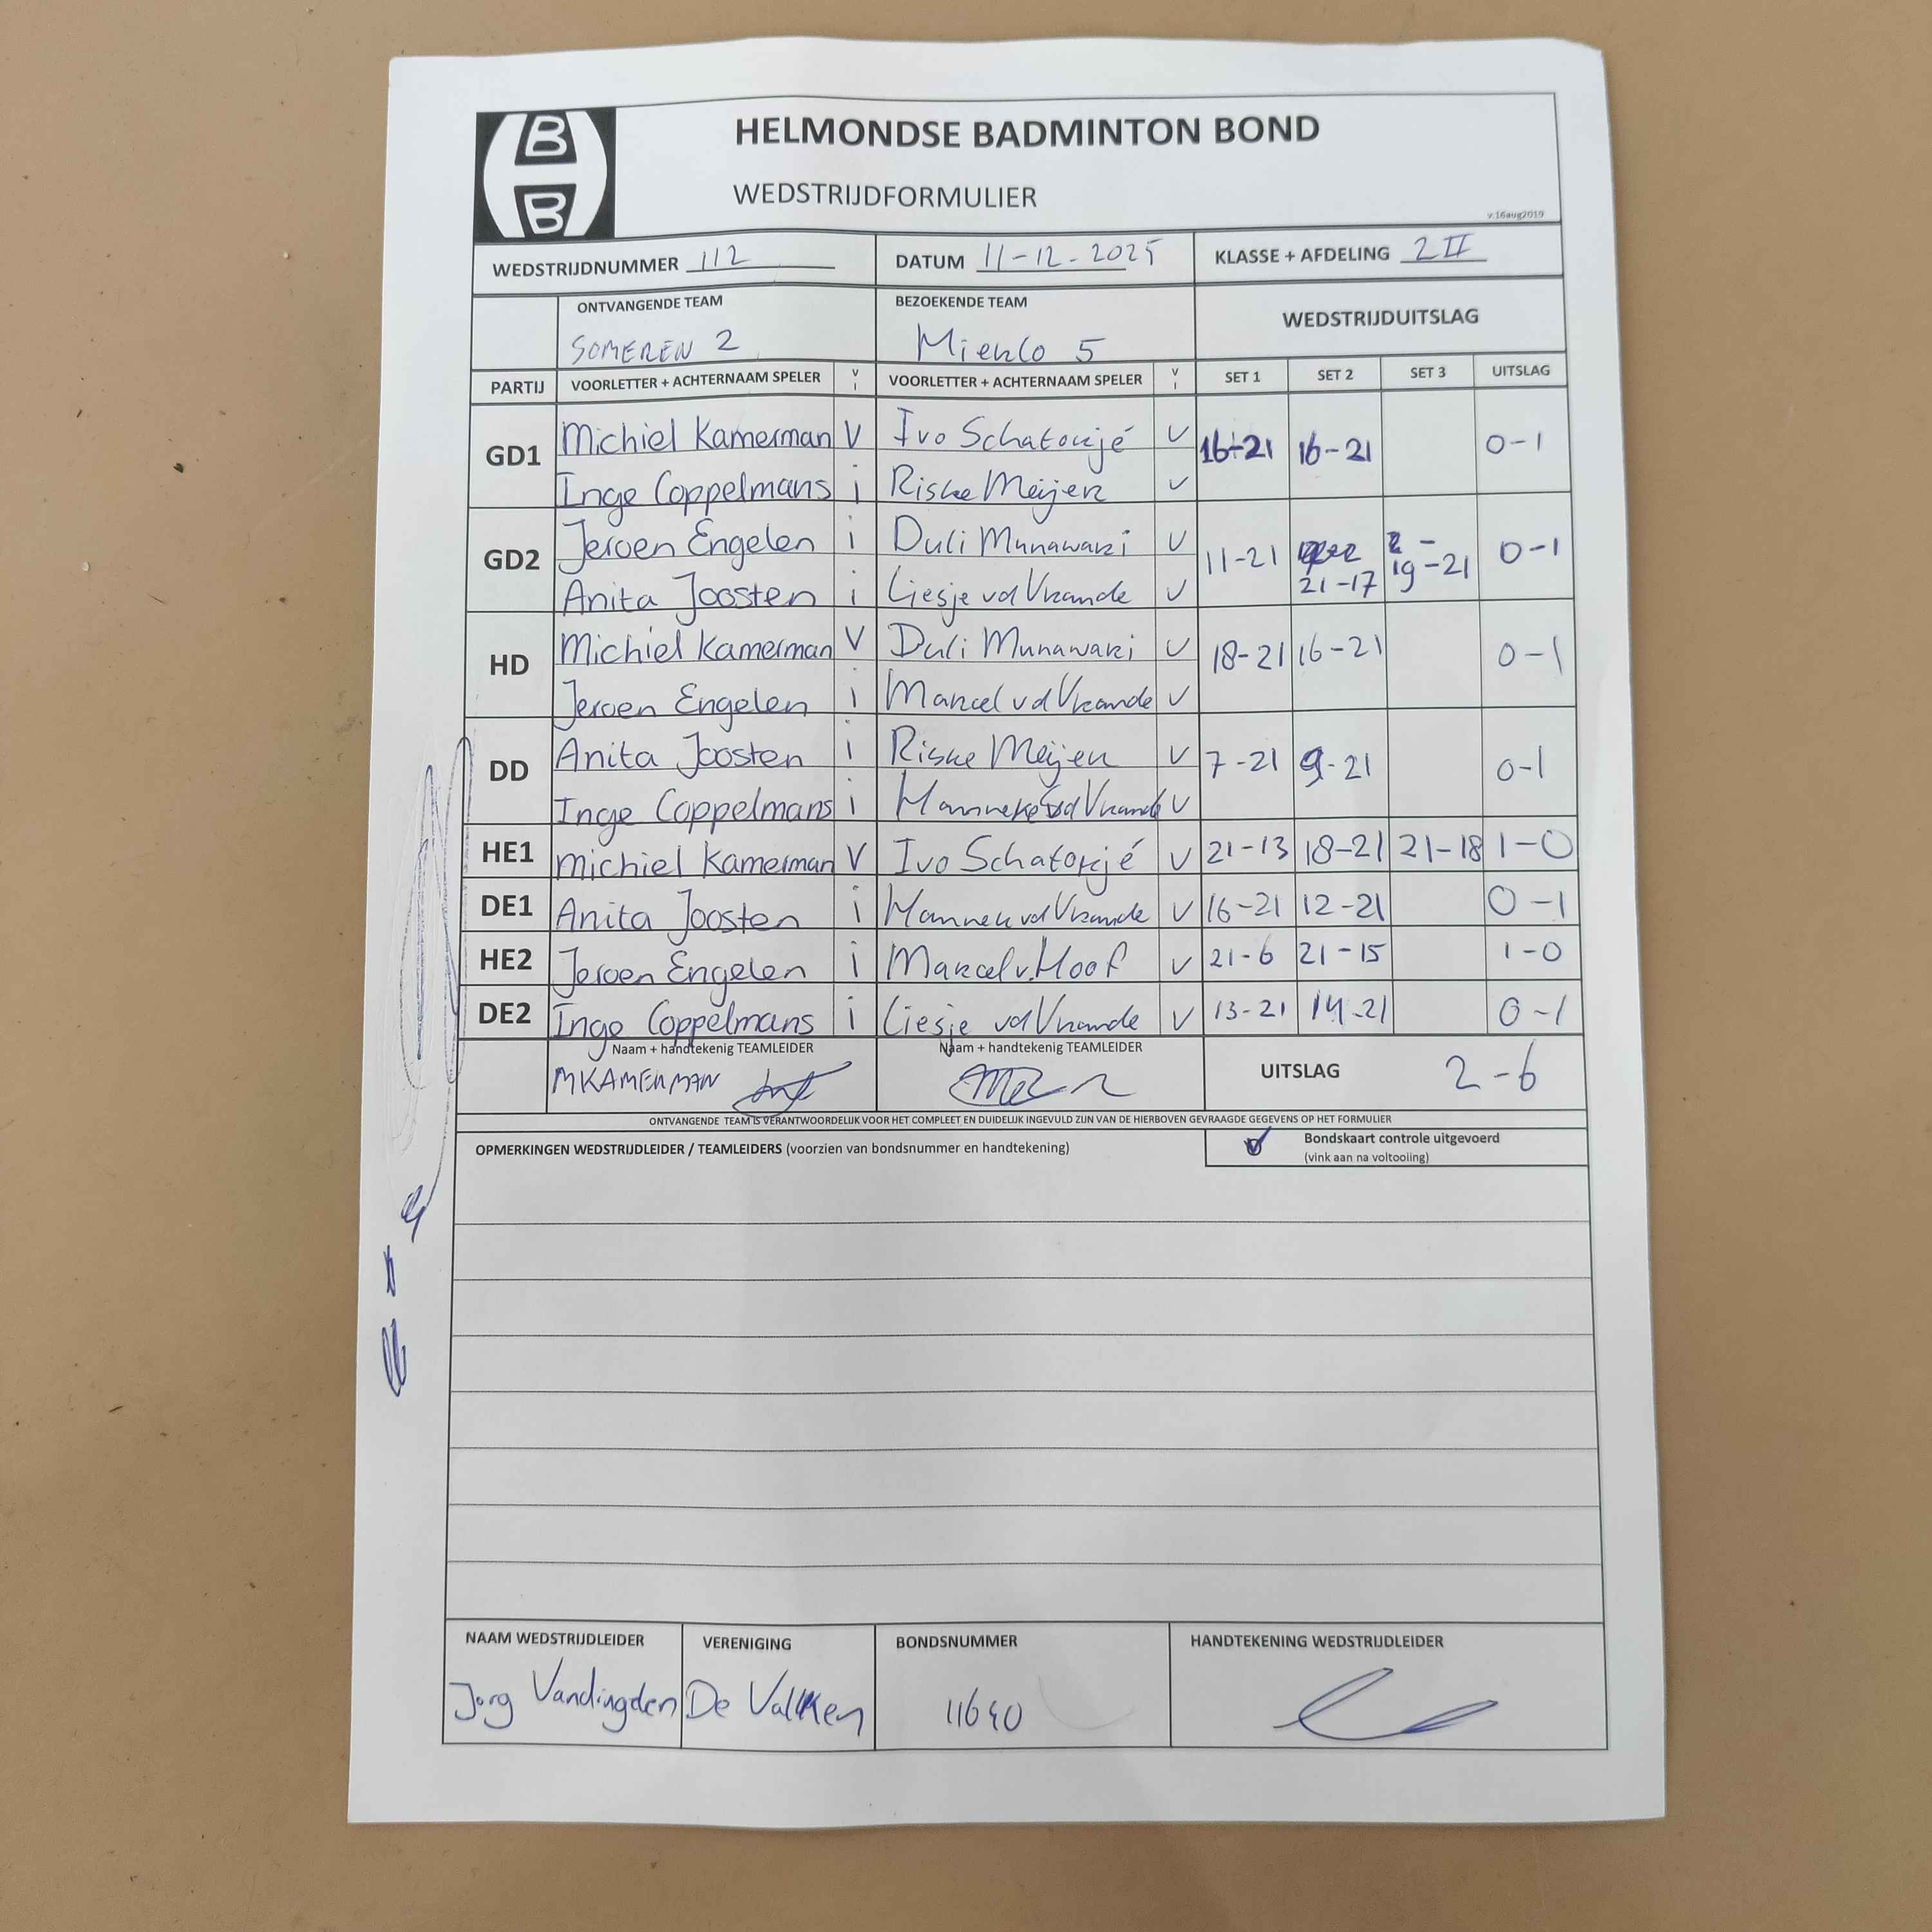 B
B
HELMONDSE BADMINTON BOND
WEDSTRIJDFORMULIER
v.16aug2019
WEDSTRIJDNUMMER 112 DATUM 11-12-2025 KLASSE + AFDELING 2 II
ONTVANGENDE TEAM BEZOEKENDE TEAM WEDSTRIJDUITSLAG
SOMEREN 2 Mierlo 5
PARTIJ VOORLETTER + ACHTERNAAM SPELER V I VOORLETTER + ACHTERNAAM SPELER V I SET 1 SET 2 SET 3 UITSLAG
GD1 Michiel Kamerman V Ivo Schatorjé V 16-21 16-21 0-1
Inge Coppelmans i Riske Meijer V
GD2 Jeroen Engelen i Duli Munawari V 11-21 21-17 19-21 0-1
Anita Joosten i Liesje vd Vrande V
HD Michiel Kamerman V Duli Munawari V 18-21 16-21 0-1
Jeroen Engelen i Marcel vd Vrande V
DD Anita Joosten i Riske Meijer V 7-21 9-21 0-1
Inge Coppelmans i vd Vrande V
HE1 Michiel Kamerman V Ivo Schatorjé V 21-13 18-21 21-18 1-0
DE1 Anita Joosten i vd Vrande V 16-21 12-21 0-1
HE2 Jeroen Engelen i Marcel v. Hoof V 21-6 21-15 1-0
DE2 Inge Coppelmans i Liesje vd Vrande V 13-21 14-21 0-1
Naam + handtekenig TEAMLEIDER Naam + handtekenig TEAMLEIDER UITSLAG 2-6
MKAMERMAN
ONTVANGENDE TEAM IS VERANTWOORDELIJK VOOR HET COMPLEET EN DUIDELIJK INGEVULD ZIJN VAN DE HIERBOVEN GEVRAAGDE GEGEVENS OP HET FORMULIER
OPMERKINGEN WEDSTRIJDLEIDER / TEAMLEIDERS (voorzien van bondsnummer en handtekening) Bondskaart controle uitgevoerd
(vink aan na voltooiing)
NAAM WEDSTRIJDLEIDER VERENIGING BONDSNUMMER HANDTEKENING WEDSTRIJDLEIDER
Jorg Vandingden De Valken 11640